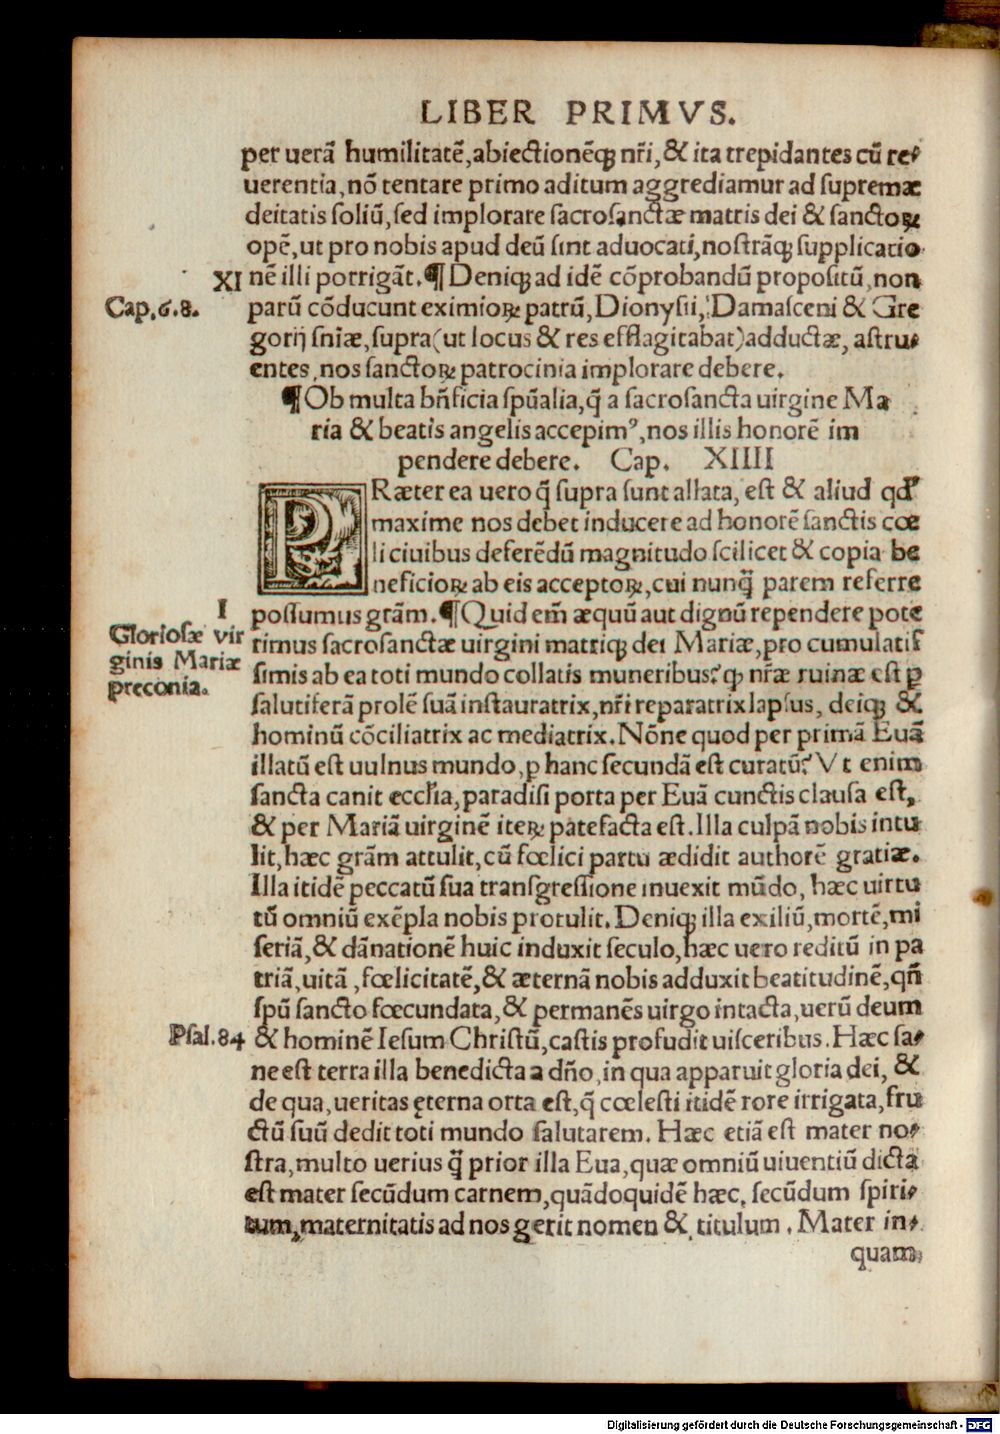 LIBER PRIMVS.
per uerā humilitatē, abiectionēqꝫ nr̄i, & ita trepidantes cū re-
uerentia, nō tentare primo aditum aggrediamur ad supremæ
deitatis soliū, sed implorare sacrosanctæ matris dei & sanctoꝝ
opē, ut pro nobis apud deū sint aduocati, nostrāqꝫ supplicatio
XI nē illi porrigāt. ¶ Deniqꝫ ad idē cōprobandū propositū, non
Cap. 6. 8. parū cōducunt eximioꝝ patrū, Dionysii, Damasceni & Gre
gorij sn̄iæ, supra (ut locus & res efflagitabat) adductæ, astru-
entes, nos sanctoꝝ patrocinia implorare debere.
¶ Ob multa bn̄ficia spūalia, q̄ a sacrosancta uirgine Ma
ria & beatis angelis accepimꝰ, nos illis honorē im
pendere debere. Cap. XIIII
PRæter ea uero q̄ supra sunt allata, est & aliud qd̕
maxime nos debet inducere ad honorē sanctis cœ
li ciuibus deferēdū magnitudo scilicet & copia be
neficioꝝ ab eis acceptoꝝ, cui nunq̄ parem referre
I possumus grām. ¶ Quid em̄ æquū aut dignū rependere pote
Gloriosæ vir
ginis Mariæ
preconia.
rimus sacrosanctæ uirgini matriqꝫ dei Mariæ, pro cumulatis
simis ab ea toti mundo collatis muneribus? qꝫ nr̄æ ruinæ est ꝑ
salutiferā prolē suā instauratrix, nr̄i reparatrix lapsus, deiqꝫ &
hominū cōciliatrix ac mediatrix. Nōne quod per primā Euā
illatū est uulnus mundo, ꝑ hanc secundā est curatū? Vt enim
sancta canit eccl̄ia, paradisi porta per Euā cunctis clausa est,
& per Mariā uirginē iteꝝ patefacta est. Illa culpā nobis intu
lit, hæc grām attulit, cū fœlici partu ædidit authorē gratiæ.
Illa itidē peccatū sua transgressione inuexit mūdo, hæc uirtu
tū omniū exēpla nobis protulit. Deniqꝫ illa exiliū, mortē, mi
seriā, & dānationē huic induxit seculo, hæc uero reditū in pa
triā, uitā, fœlicitatē, & æternā nobis adduxit beatitudinē, qn̄
spū sancto fœcundata, & permanēs uirgo intacta, uerū deum
Psal. 84 & hominē Iesum Christū, castis profudit uisceribus. Hæc sa-
ne est terra illa benedicta a dn̄o, in qua apparuit gloria dei, &
de qua, ueritas ęterna orta est, q̄ cœlesti itidē rore irrigata, fru
ctū suū dedit toti mundo salutarem. Hæc etiā est mater no-
stra, multo uerius q̄ prior illa Eua, quæ omniū uiuentiū dicta
est mater secūdum carnem, quādoquidē hæc, secūdum spiri-
tum, maternitatis ad nos gerit nomen & titulum. Mater in-
quam,
Digitalisierung gefördert durch die Deutsche Forschungsgemeinschaft - DFG